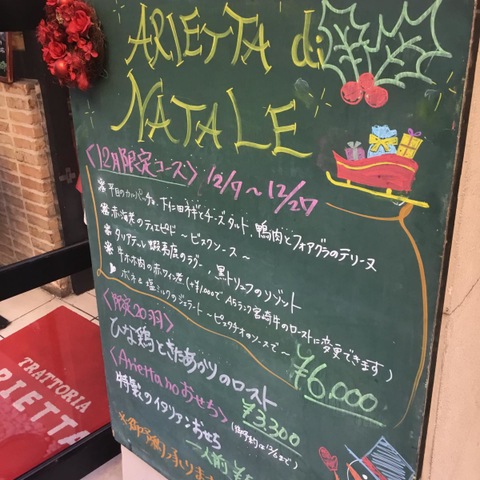 ARIETTA di
NATALE
〈12月限定コース〉 12/9~12/27
下仁田ネギとチーズタルト、鴨肉とフォアグラのテリーヌ
赤海老のティエピド ~ビスクソース~
タリアテッレ 蝦夷鹿のラグー、黒トリュフのリゾット
牛ホホ肉の赤ワイン煮 (+¥1,000でA5ランク宮崎牛のローストに変更できます)
塩ミルクのジェラート ~ピスタチオのソースで~
¥6,000
〈限定20羽〉
ひな鶏ときたあかりのロースト
¥3,300
〈Arietta no おせち〉
特製のイタリアンおせち
一人前
TRATTORIA
ARIETTA